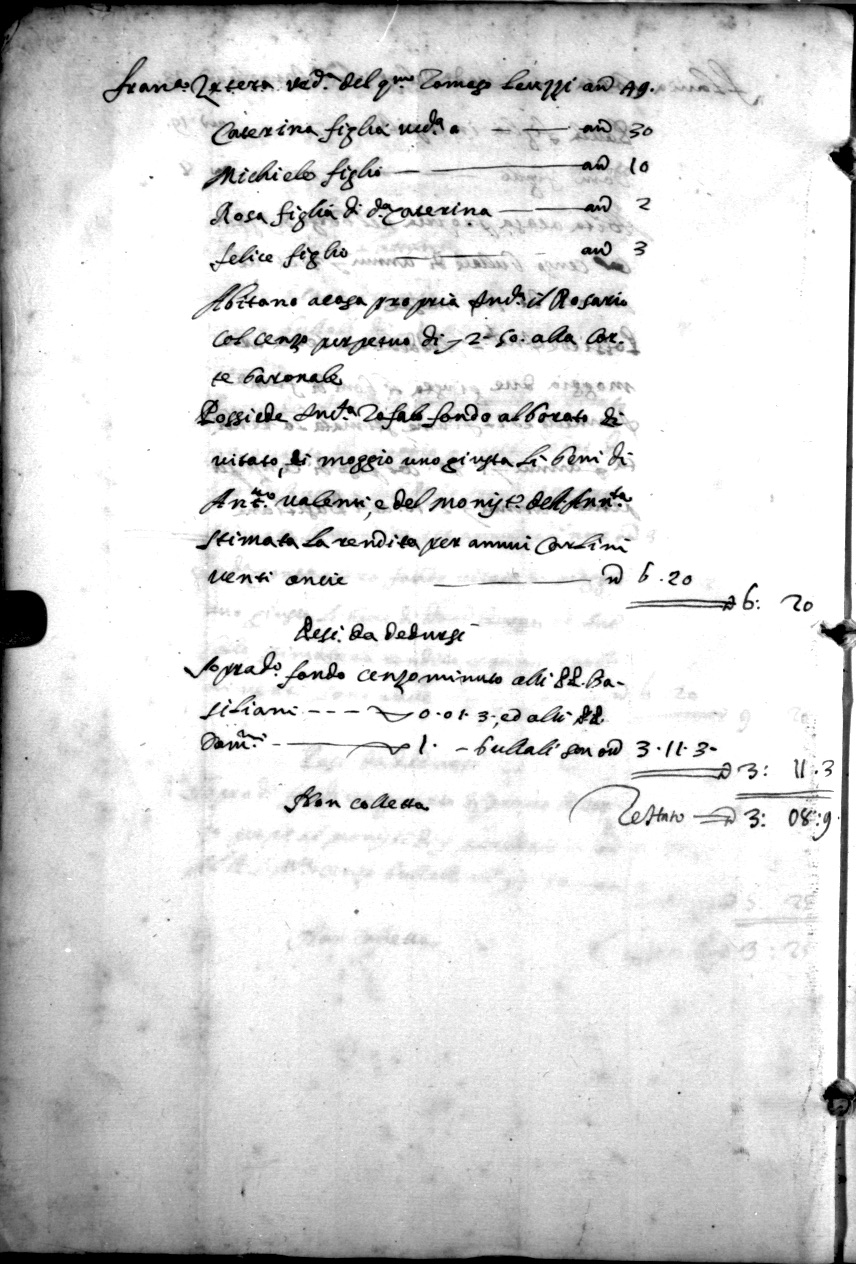 Fran.ca ved.a del q.m Tomaso Leuzzi an 49.
Caterina figlia ved.a an 30
Michiele figlio an 10
Rosa figlia di d.a Caterina an 2
Felice figlio an 3
Abitano a casa propria il Rosario
col cenzo perpetuo di 2-50. alla Cor-
te baronale
Possiede fondo alborato di
vitato, di moggio uno giusta li beni di
Ant.no Valenti, e del monist.o dell'Ann.ta
stimata la rendita per annui Carlini
venti oncie 6.20
6: 20
Pesi da dedursi
Soprad.o fondo cenzo minuto alli PP. Ba-
siliani --- 0-01-3, ed alli PP.
Dom.ni 1. - bullali son on 3.11.3-
3: 11.3
Non colletta Restano 3: 08:9.